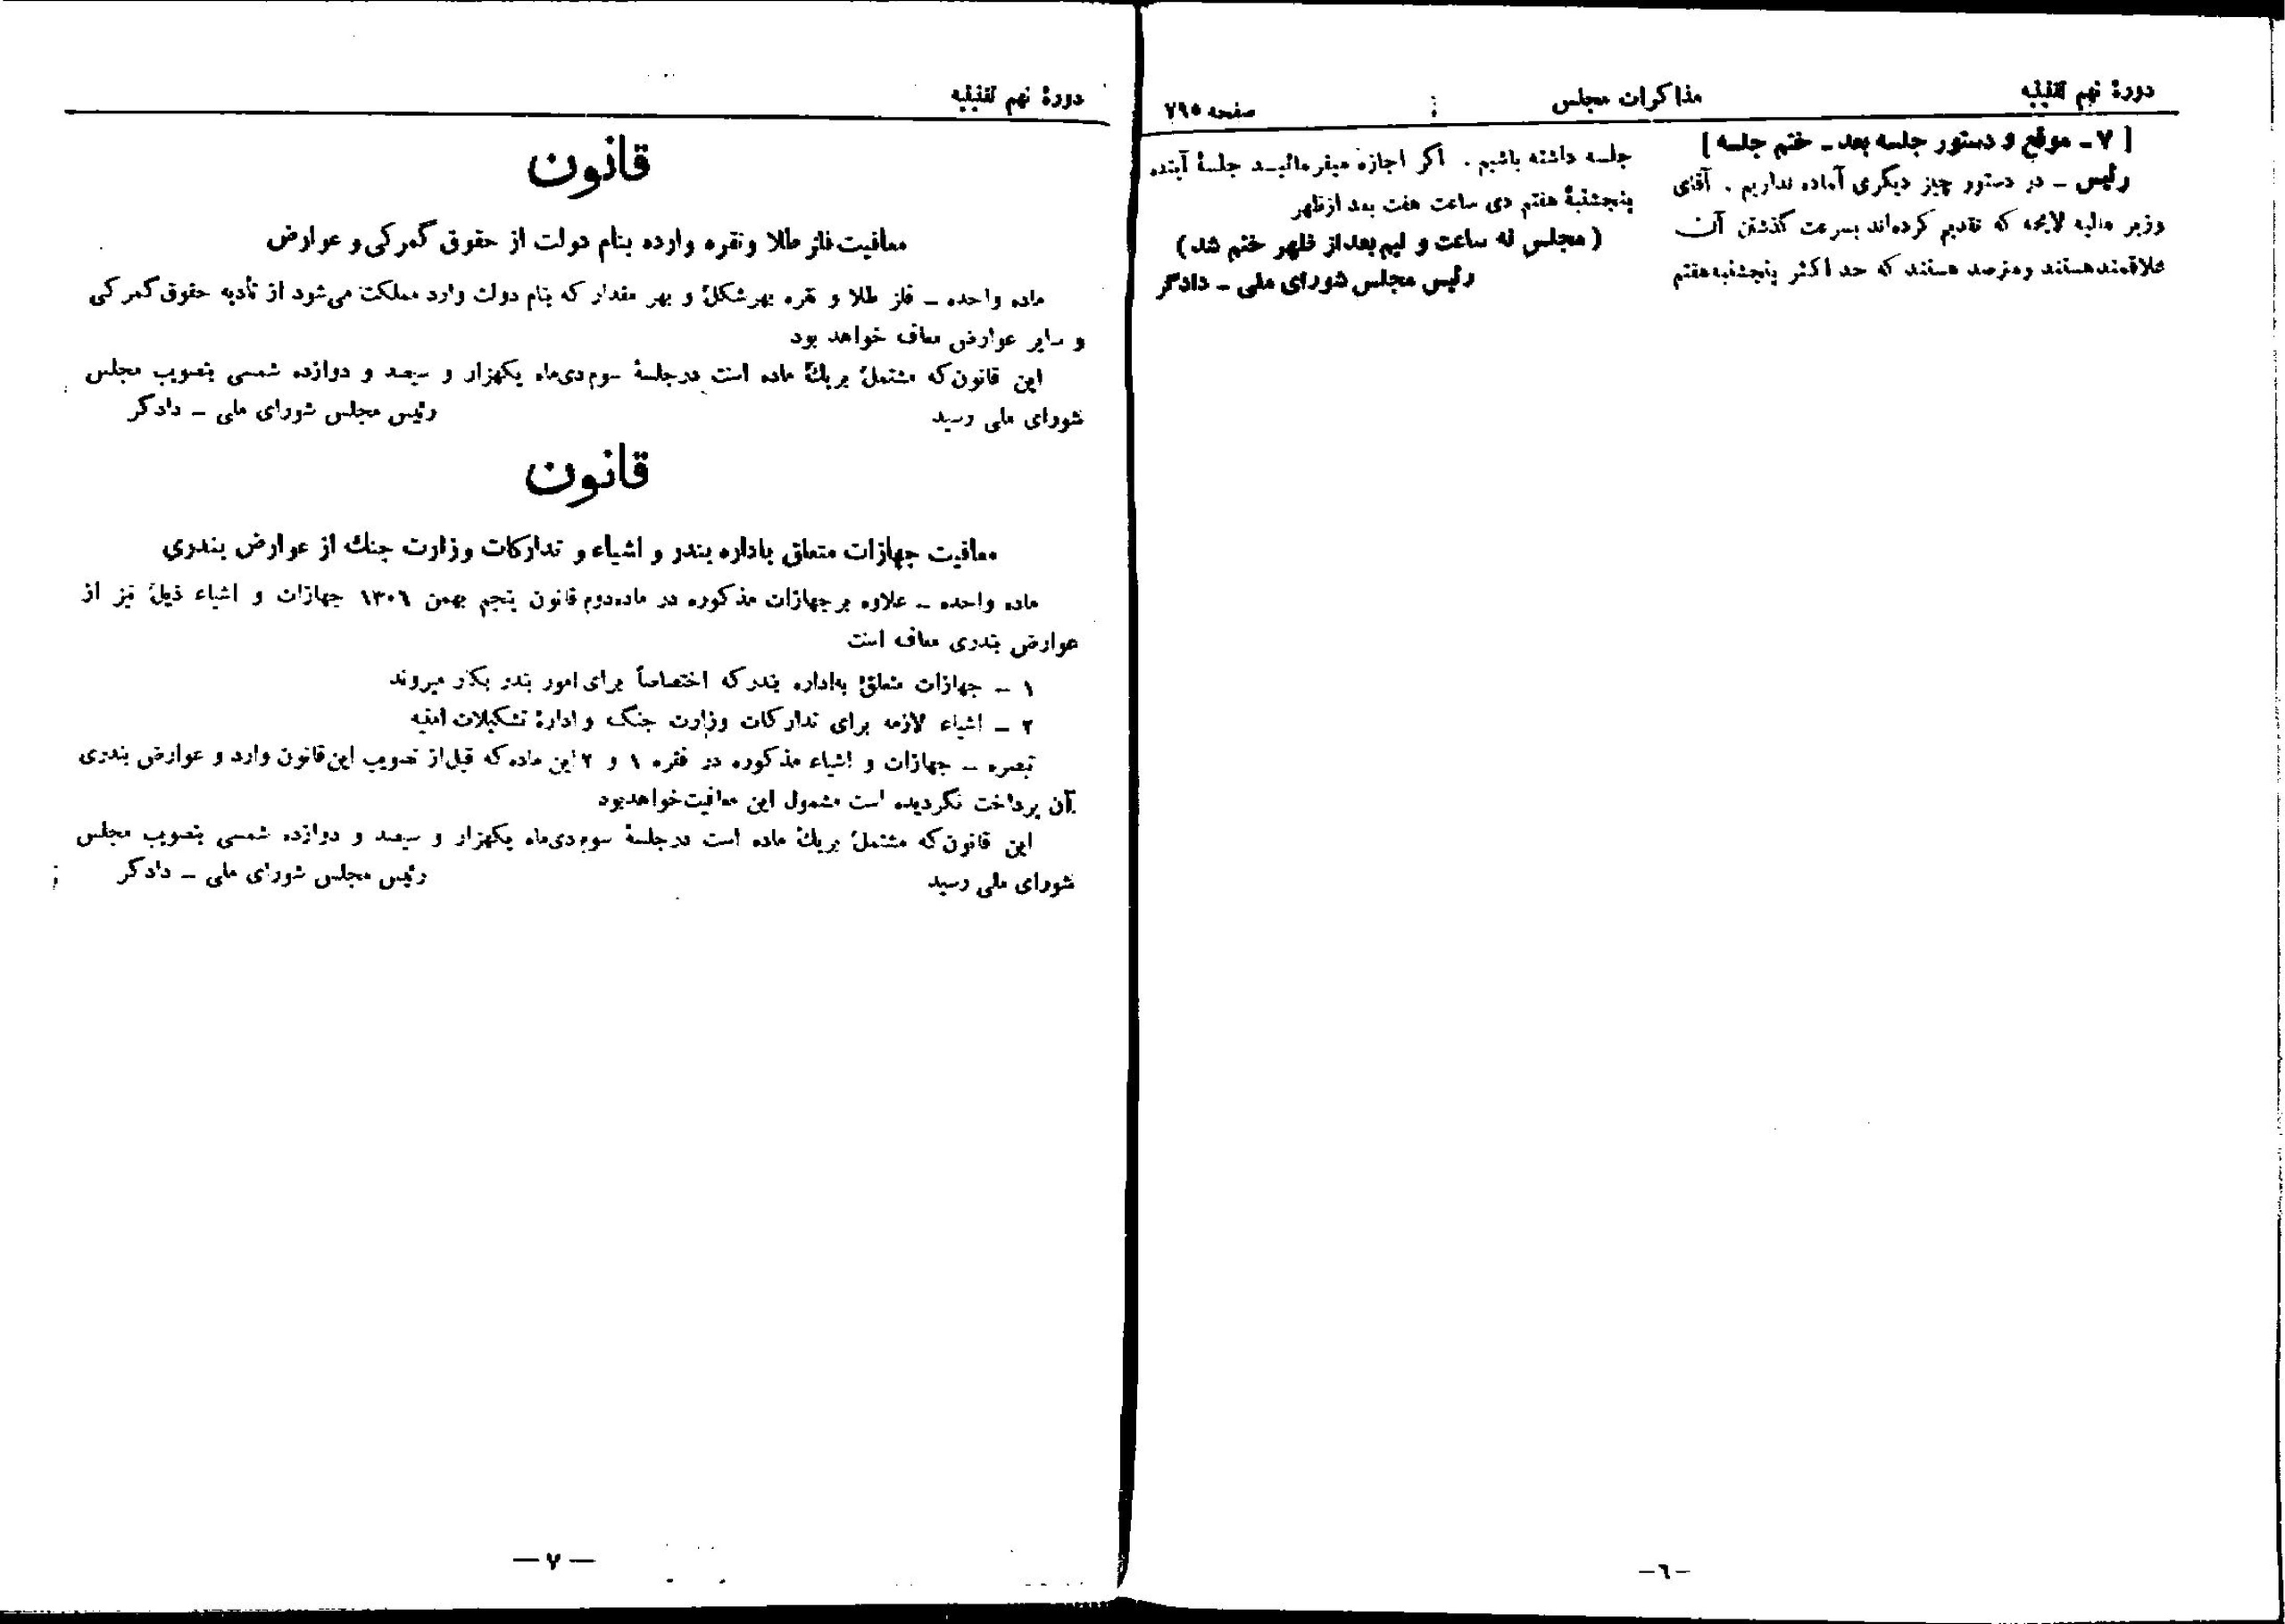 دورهٔ نهم تقنینیه
مذاکرات مجلس
صفحه ۷۹۵
[ ۷ ـ موقع و دستور جلسه بعد ـ ختم جلسه ]
رئیس ـ در دستور چیز دیگری آماده نداریم . آقای
وزیر مالیه لایحه که تقدیم کرده‌اند بسرعت گذشتن آن
علاقمند هستند و مترصد هستند که حد اکثر پنجشنبه هفتم
جلسه داشته باشیم . اگر اجازه میفرمائید جلسهٔ آینده
پنجشنبهٔ هفتم دی ساعت هفت بعد از ظهر
( مجلس نه ساعت و نیم بعد از ظهر ختم شد )
رئیس مجلس شورای ملی ـ دادگر
ـ ٦ ـ
دورهٔ نهم تقنینیه
قانون
معافیت فلز طلا و نقره وارده بنام دولت از حقوق گمرکی و عوارض
ماده واحده ـ فلز طلا و نقره بهر شکل و بهر مقدار که بنام دولت وارد مملکت می‌شود از تأدیه حقوق گمرکی
و سایر عوارض معاف خواهد بود
این قانون که مشتمل بر یک ماده است در جلسهٔ سوم دی‌ماه یکهزار و سیصد و دوازده شمسی بتصویب مجلس
شورای ملی رسید رئیس مجلس شورای ملی ـ دادگر
قانون
معافیت جهازات متعلق باداره بندر و اشیاء و تدارکات وزارت جنک از عوارض بندری
ماده واحده ـ علاوه بر جهازات مذکوره در ماده دوم قانون پنجم بهمن ۱۳۰٦ جهازات و اشیاء ذیل نیز از
عوارض بندری معاف است
۱ ـ جهازات متعلق به‌اداره بندر که اختصاصاً برای امور بندر بکار میروند
۲ ـ اشیاء لازمه برای تدارکات وزارت جنگ و ادارهٔ تشکیلات امنیه
تبصره ـ جهازات و اشیاء مذکوره در فقره ۱ و ۲ این ماده که قبل از تصویب این قانون وارد و عوارض بندری
آن پرداخت نگردیده است مشمول این معافیت خواهد بود
این قانون که مشتمل بر یک ماده است در جلسهٔ سوم دی‌ماه یکهزار و سیصد و دوازده شمسی بتصویب مجلس
شورای ملی رسید رئیس مجلس شورای ملی ـ دادگر
— ۷ —